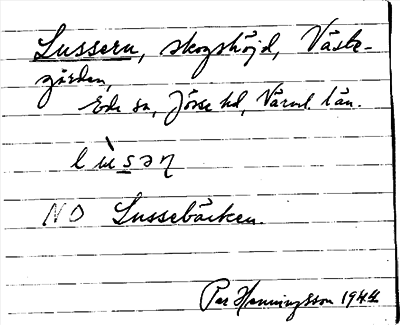 Lussern, skogshöjd, Väste-
gården,
Eds sn, Jösse hd, Värml. län.
lùsəɳ
NO Lussebäcken.
Per Henningsson 1944